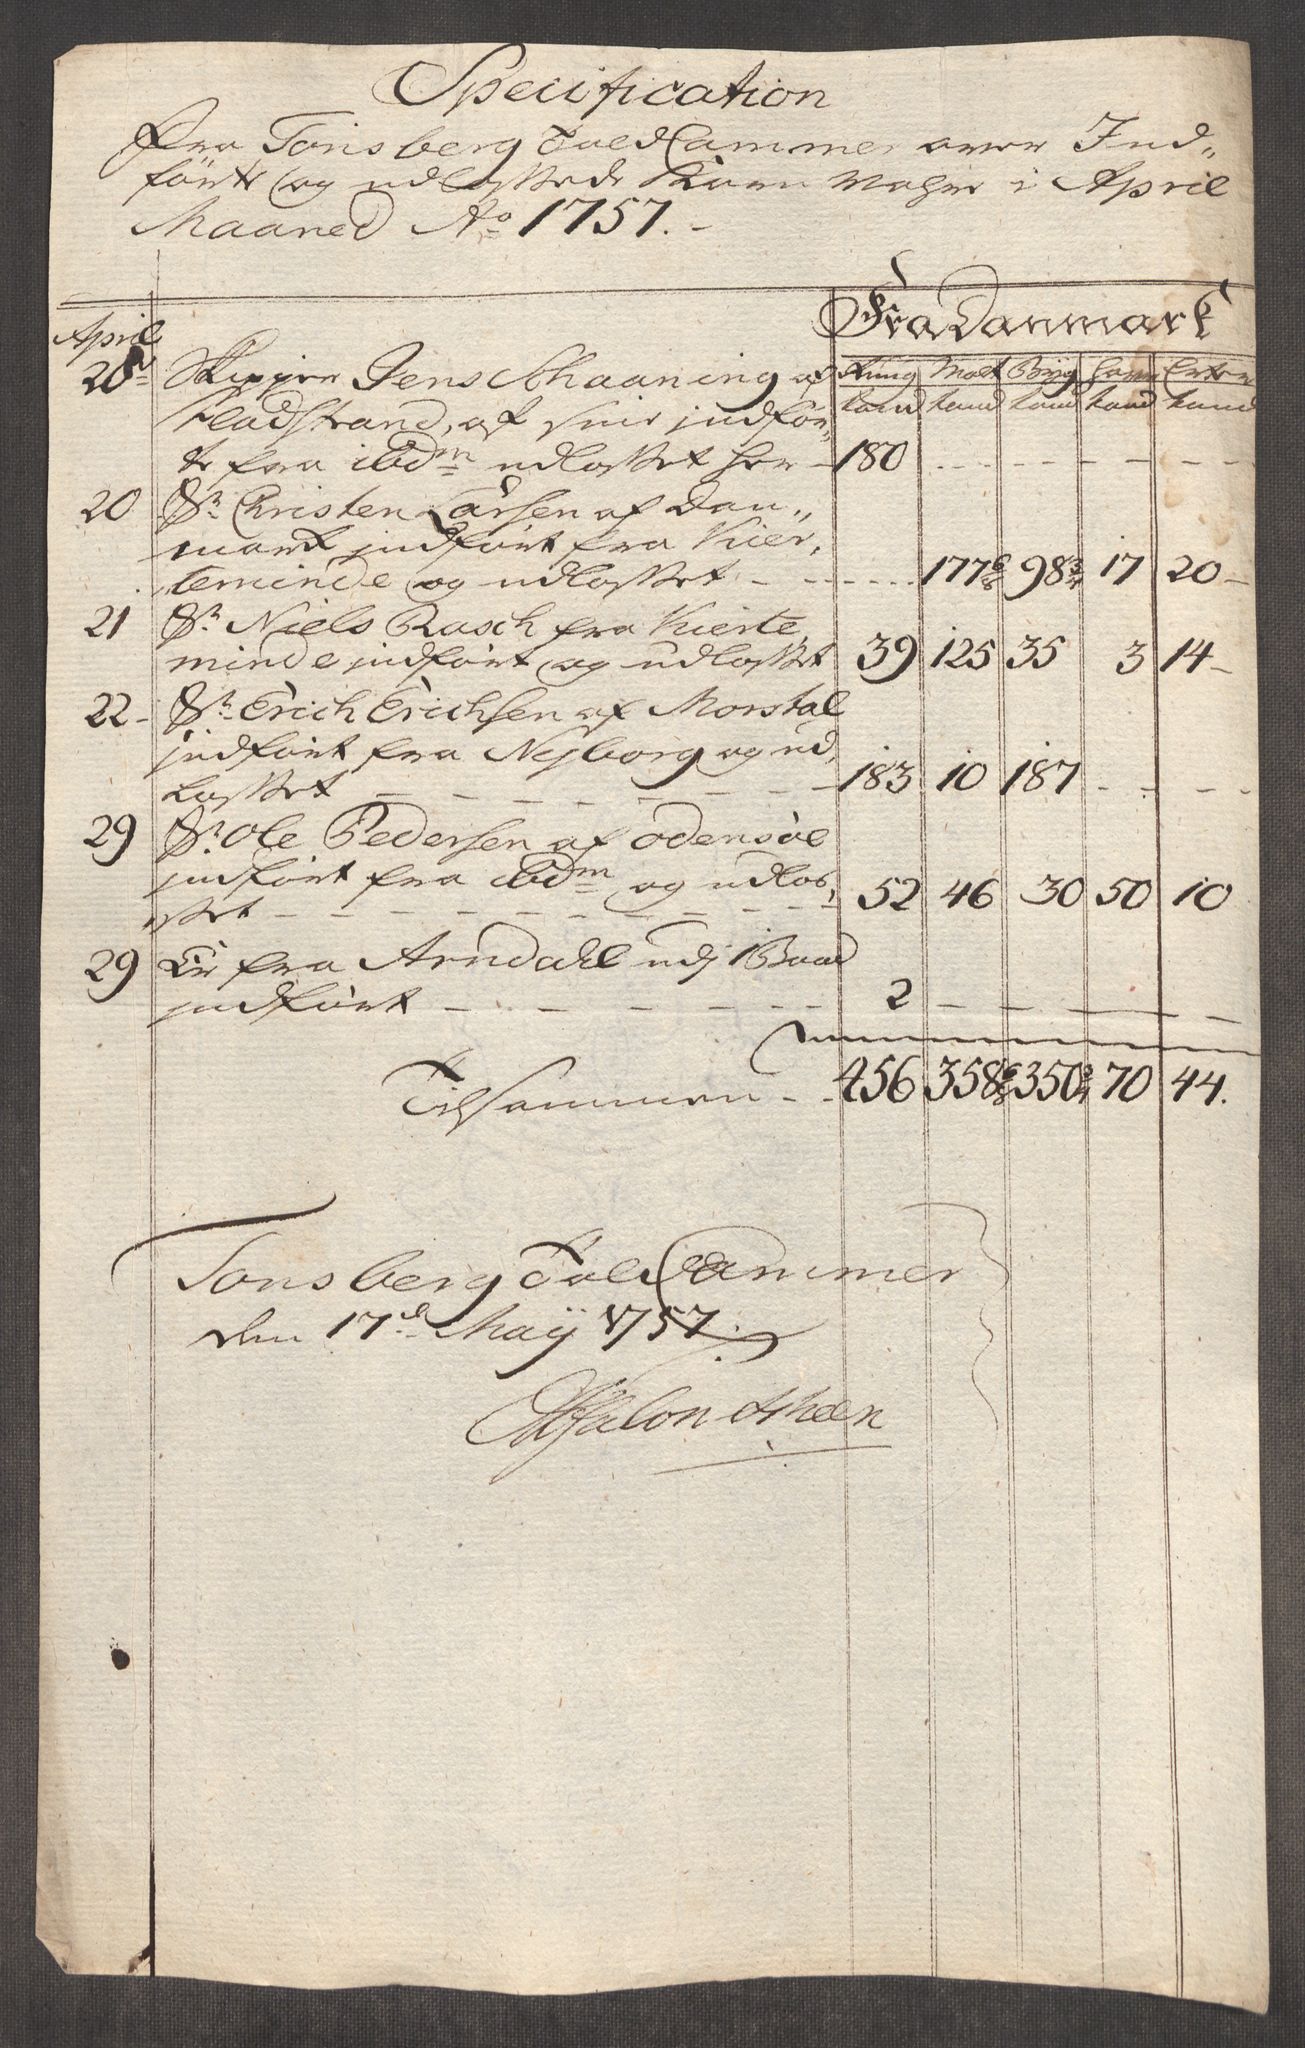 Specification
fra Tonsberg Told Cammer over Ind„
førte og udlossede Korn Vahre i April
Maaned Ao 1757.
Fra Danmark
April
Rug Malt Byg Erter
20 Skipper Jens Schaaning af
Fladstrand, af indfør„
te fra ibdm udlosset her 180
20 Sr. Christen Larsen af Dan„
mark indført fra Kier„
teminde og udlosset 177 6/8 98 3/4 17 20
21 Sr. Niels Rasch fra Kierte„
minde indført og udlosset 39 125 35 3 14
22 Sr. Erich Erichsen af Morstal
indført fra Nyborg og ud„
losset 183 10 187
29 Sr. Ole Pedersen af Odensöe
indført fra ibdm og udlos„
set 52 46 30 50 10
29 Er fra Arndahl udj 1 Baad
indført 2
Tilsammen 456 358 6/8 350 3/4 70 44.
Tonsberg Told Cammer
den 17d Maÿ 1757.